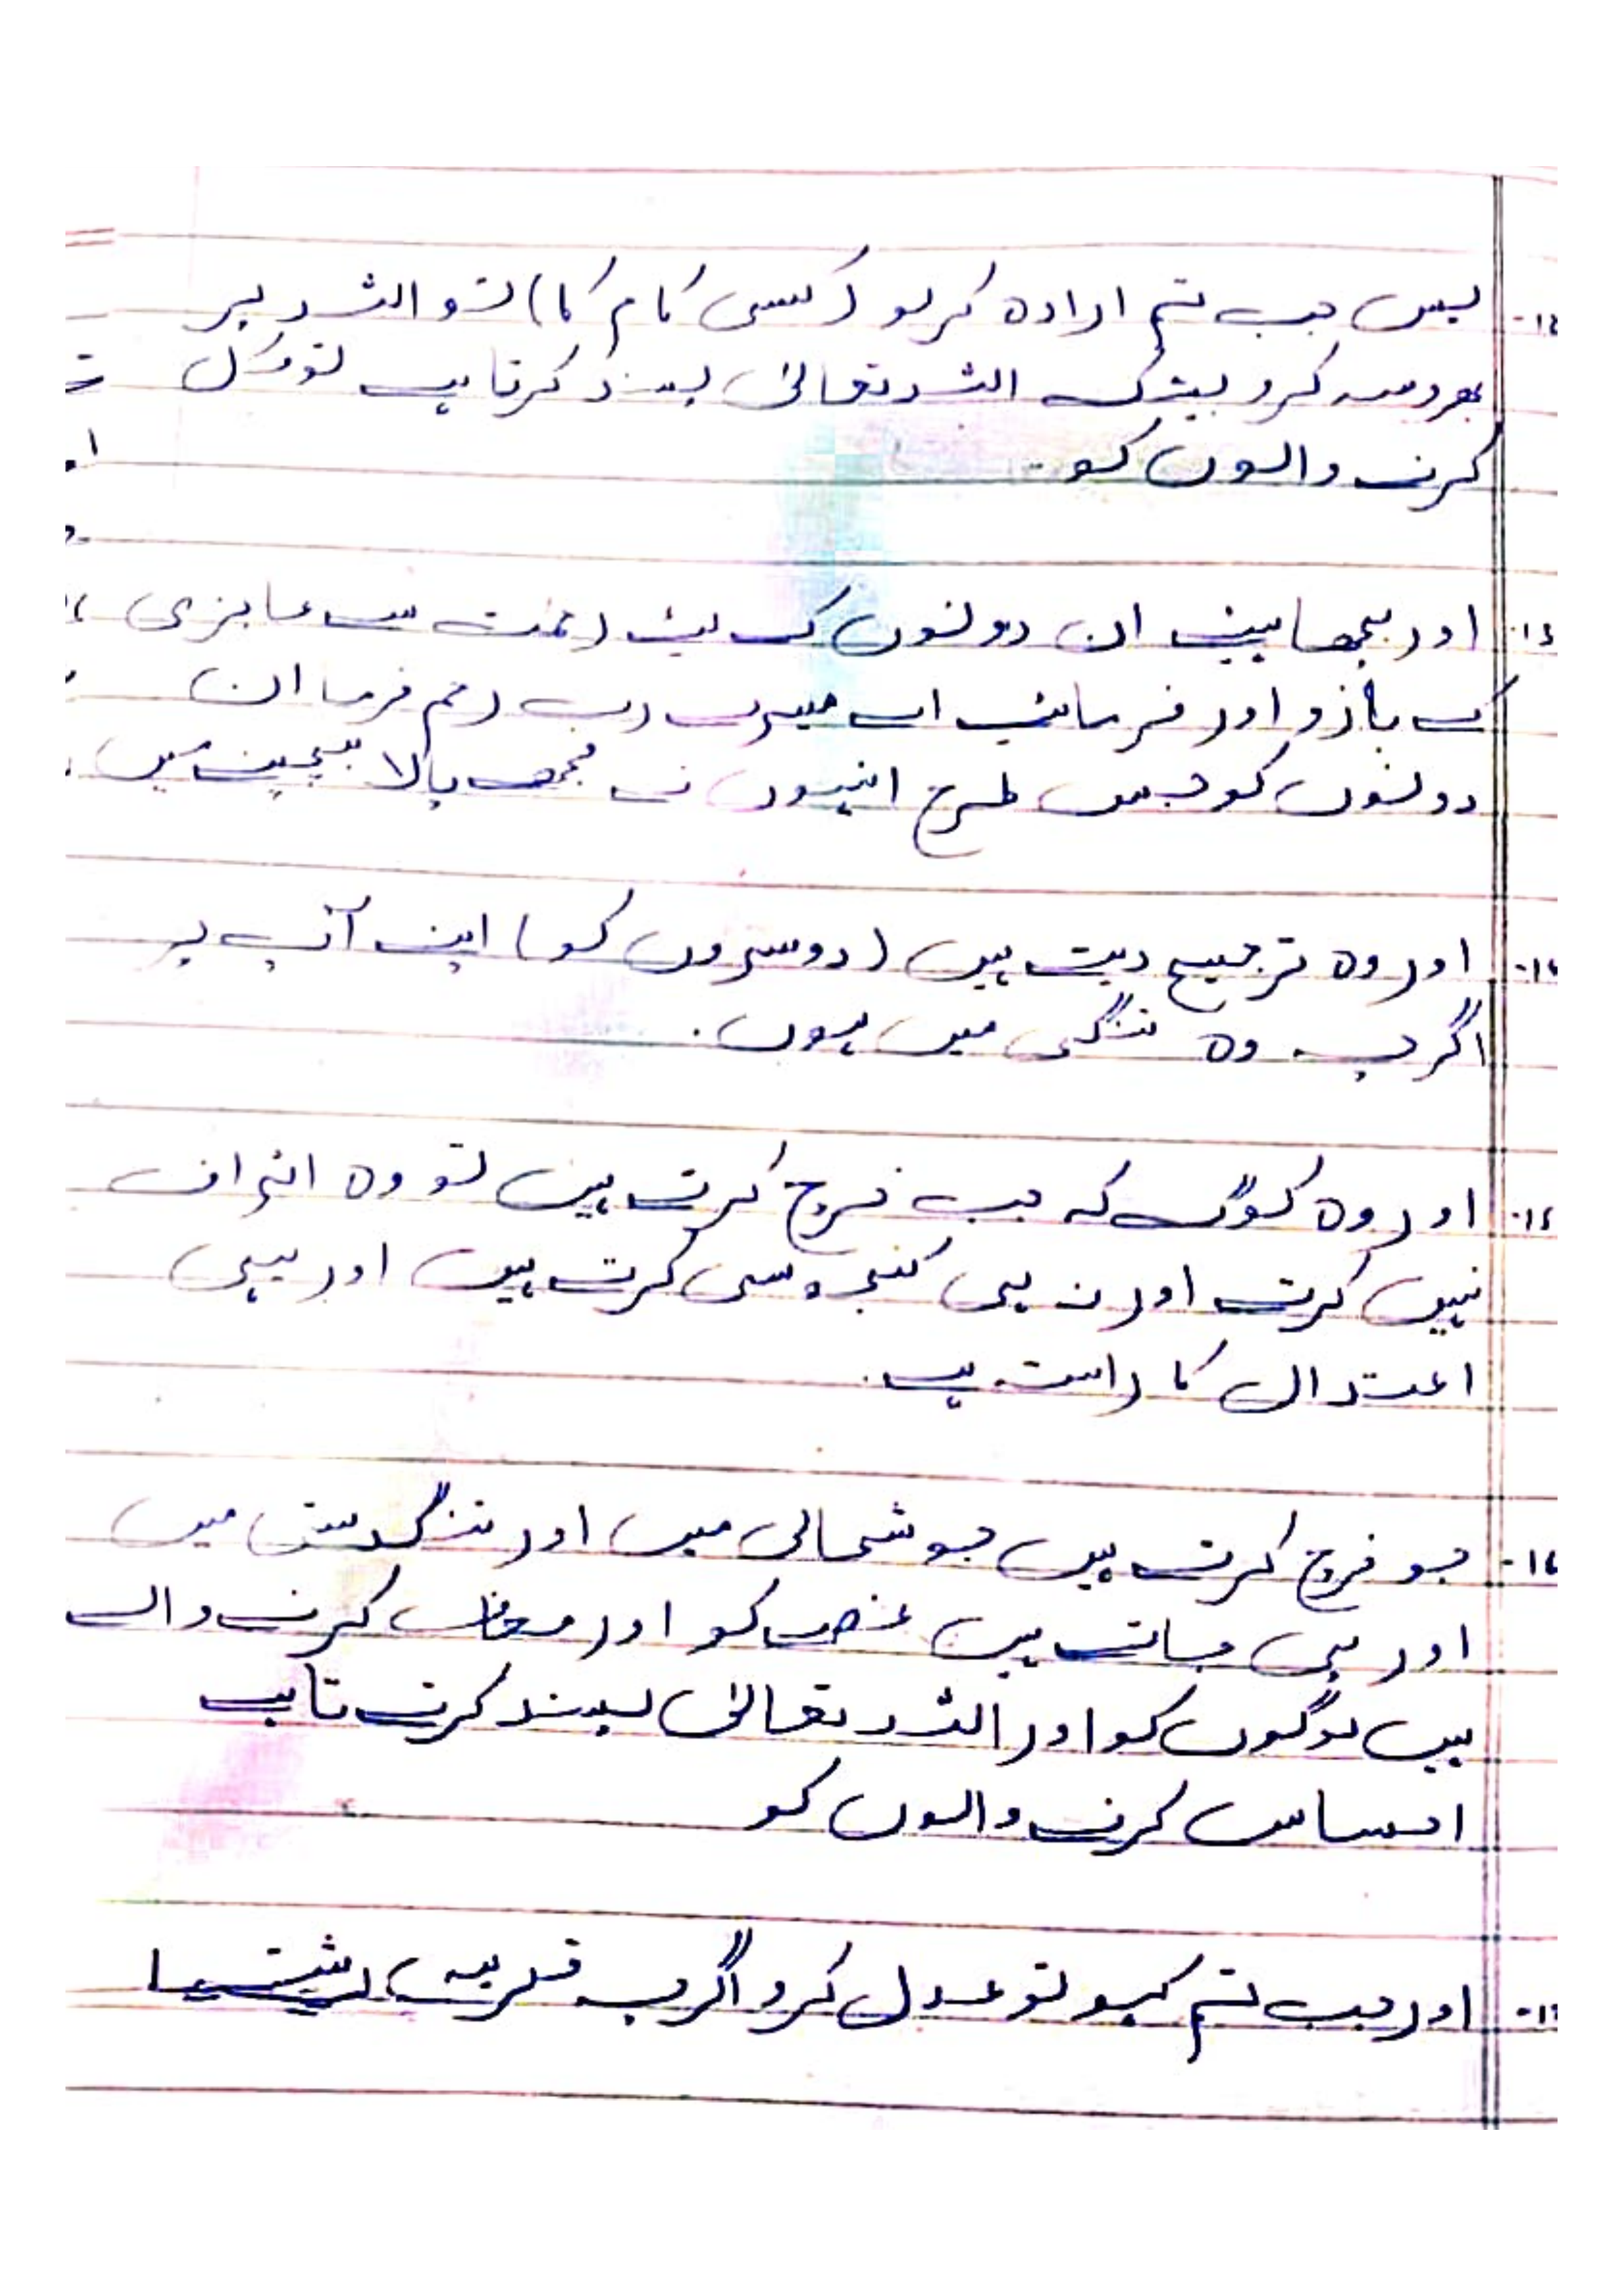 پس جب تم ارادہ کرلو (کسی کام کا) تو اللہ پر
بھروسہ کرو بیشک اللہ تعالیٰ پسند کرتا ہے توکل
کرنے والوں کو
اور بچھایئے ان دونوں کے لیئے رحمت سے عاجزی
کے بازو اور فرمائیے اے میرے رب رحم فرما ان
دونوں کو جس طرح انہوں نے مجھے پالا بچپن میں
اور وہ ترجیح دیتے ہیں (دوسروں کو) اپنے آپ پر
اگرچہ وہ تنگی میں ہوں.
اور وہ لوگ کہ جب خرچ کرتے ہیں تو وہ
نہیں کرتے اور نہ ہی کنجوسی کرتے ہیں اور یہی
اعتدال کا راستہ ہے.
جو خرچ کرتے ہیں خوشحالی میں اور تنگدستی میں
اور پی جاتے ہیں غصے کو اور معاف کرنے والے
ہیں لوگوں کو اور اللہ تعالیٰ پسند کرتے تا ہے
احساس کرنے والوں کو
اور جب تم کہو تو عدل کرو اگرچہ قریبی